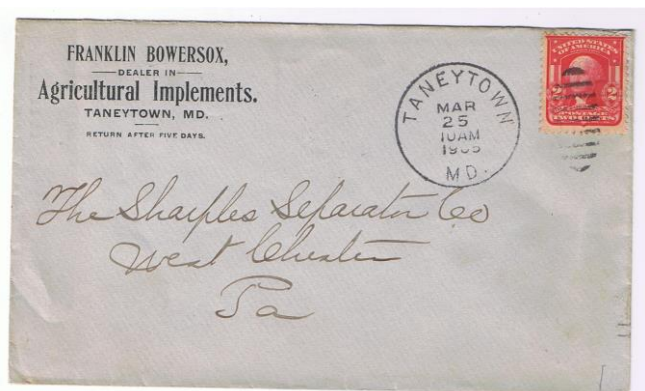 FRANKLIN BOWERSOX,
DEALER IN
Agricultural Implements.
TANEYTOWN, MD.
RETURN AFTER FIVE DAYS.
TANEYTOWN
MAR
25
10AM
1905
MD.
UNITED STATES
OF AMERICA
2 2
POSTAGE
TWO CENTS
The Sharples Separator Co
West Chester
Pa